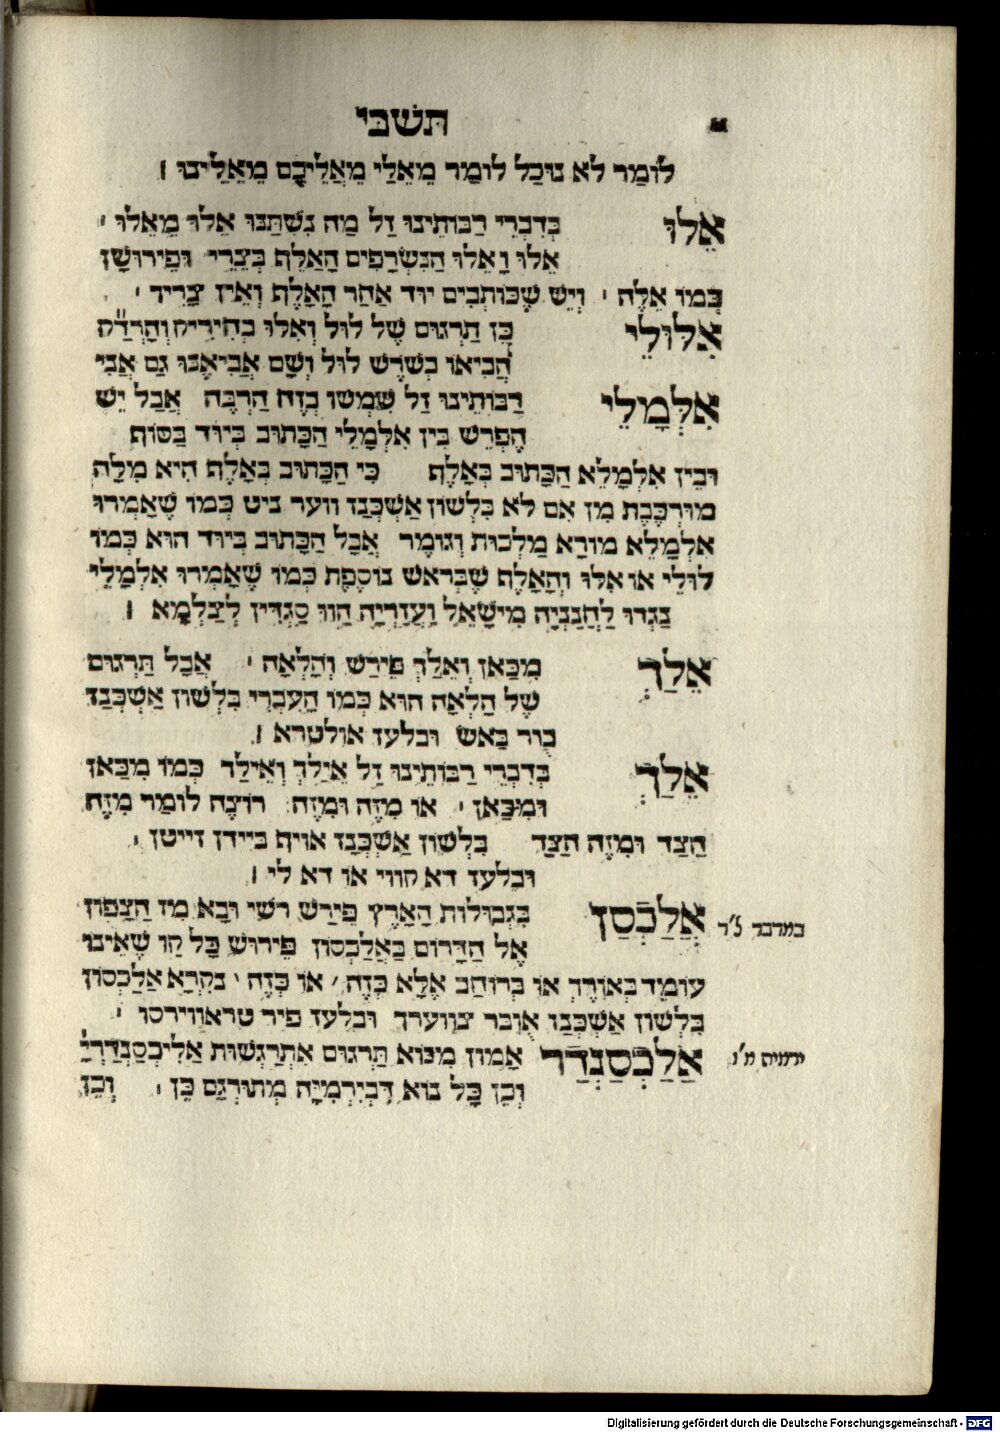 תשבי
לומַר לא נוּכַל לומַר מֵאֵלַי מֵאֲלֵיכֶם מֵאֵלֵינוּ ׀
אֵלוּ בְּדִבְרֵי רַבּוֹתֵינוּ זַל מַה נִשְׁתַּנּוּ אֵלוּ מֵאֵלוּ ׳
אֵלוּ וָאֵלוּ הַנִשְׂרָפִים הָאַלֶף בְּצֵרֵי וּפֵירוּשָׁן
כְּמוֹ אֵלֶה ׳ וְיֵשׁ שֶׁכּוֹתְבִים יוּד אַחַר הָאָלֶף וְאֵין צָרִיךְ ׳
אִלּוּלֵי כֵּן תַרְגוּם שֶׁל לוּל וְאִלוּ בְחִירִיק וְהָרַדַ״ק
הֱבִיאוֹ בְשֹׁרֶשׁ לוּל וְשָׁם אֲבִיאֶנּוּ גַם אֲנִי
אִלְּמָלֵי רַבּוֹתֵינוּ זַל שִׁמְשׁוּ בְזֶה הַרְבֵּה אֲבָל יֵשׁ
הֶפְרֵשׁ בֵּין אִלְמָלֵי הַכָּתוּב בְּיוּד בַּסוֹף
וּבֵין אִלְמָלֵא הַכָּתוּב בְּאָלֶף כִּי הַכָּתוּב בְּאָלֶף הִיא מִלָּה
מוּרְכֶּבֶת מִן אִם לֹא בִּלְשׁוֹן אַשְׁכְּנַז ווער ניט כְּמוֹ שֶׁאָמְרוּ
אִלְמָלֵא מוֹרָא מַלְכוּת וְגוֹמֶר אֲבָל הַכָּתוּב בְּיוּד הוּא כְּמוֹ
לוּלֵי אוֹ אִלּוּ וְהָאָלֶף שֶׁבְּרֹאשׁ נוֹסֶפֶת כְּמוֹ שֶׁאָמְרוּ אִלְמָלֵי
נַגְדוּ לַחֲנַנְיָה מִישָׁאֵל וַעֲזַרְיָה הֲווּ סָגְדִין לְצַלְמָא ׀
אֵלַךְ מִכָּאן וְאֵלַךְ פֵּירַשׁ וְהָלְאָה ׳ אֲבָל תַּרְגוּם
שֶׁל הָלְאָה הוּא כְּמוֹ הָעִבְרִי בִּלְשׁוֹן אַשְׁכְּנַז
בור באש ובלעז אולטרא ׀
אֵלַךְ בְּדִבְרֵי רַבּוֹתֵינוּ זַל אֵילַךְ וְאֵילַךְ כְּמוֹ מִכָּאן
וּמִכָּאן ׳ אוֹ מִזֶה וּמִזֶה רוֹצֶה לוֹמַר מִזֶה
הַצַד וּמִזֶה הַצַּד בִּלְשׁוֹן אַשְׁכְּנַז אויף ביידן זייטן ׳
ובלעז דא קווי או דא לי ׀
אֲלַכְסַן בִּגְבוּלוֹת הָאָרֶץ פֵּירַשׁ רַשִׁי וּבָא מִן הַצָפוֹן במדבר ל״ד
אֶל הַדָרוֹם בַּאֲלַכְסוֹן פֵּירוּשׁ כָּל קַו שֶׁאֵינוֹ
עוֹמֵד בְּאוֹרֶךְ אוֹ בְּרוֹחַב אֶלָא כָּזֶה / אוֹ כָּזֶה \ נִקְרָא אֲלַכְסוֹן
בִּלְשׁוֹן אַשְׁכְּנַז אובר צווערך וּבלעז פיר טראווירסו ׳
אַלַכְּסַנְדַר אָמוֹן מִנּוֹא תַּרְגוּם אִתְרַגְשׁוּת אֲלֵיכְּסַנְדַּרְיָ׳ ירמיה מ״ו
וְכֵן כָּל נוֹא דְּבִירְמִיָּה מְתוּרְגָם כֵּן ׳ וְכֵן
Digitalisierung gefördert durch die Deutsche Forschungsgemeinschaft - DFG